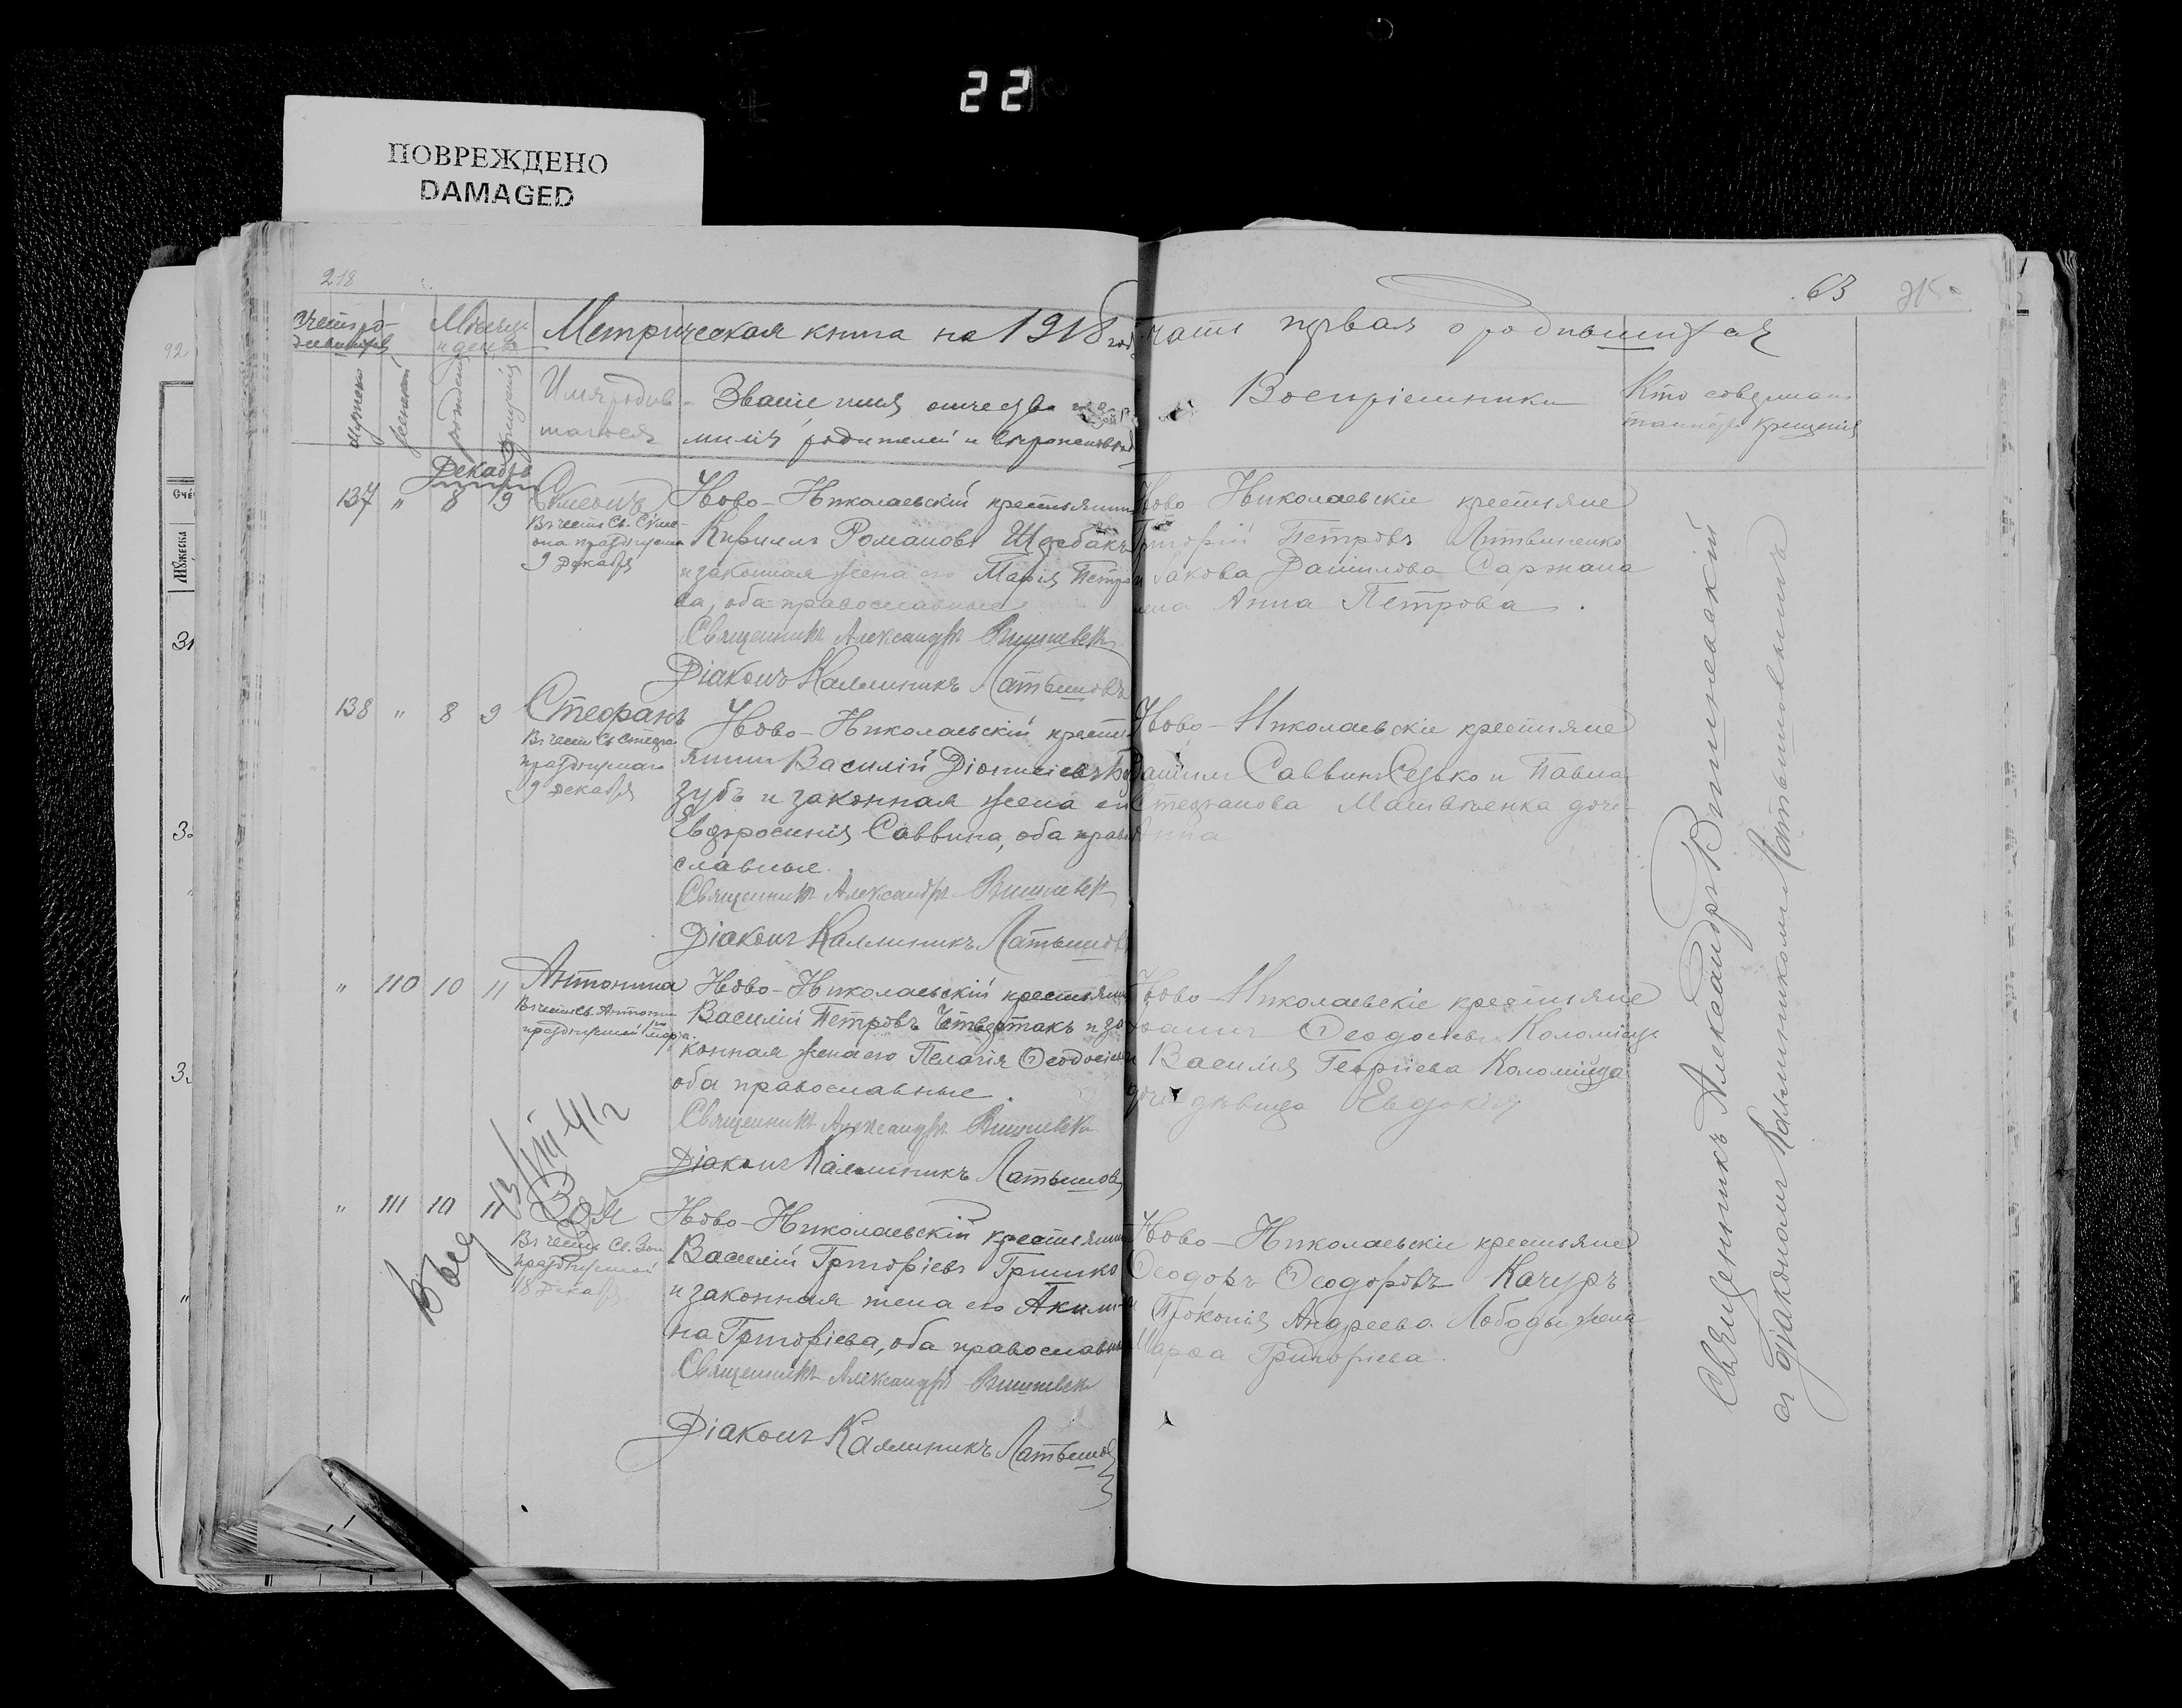 22
ПОВРЕЖДЕНО
DAMAGED
218
63
92
Метрическая книга на 1918 год
часть первая о родившихся
Мѣсяцъ
и день
мужеска
женска
рожденія
крещенія
Имя родив-
шагося
Званіе имя отчество
милія родителей и
Воспріемники
Кто совершалъ
таинство крещенія
Декабрь
137 " 8 9 Симеонъ
Въ честь Св. Симе-
она празднуемаго
9 Декабря
Ново-Николаевскій крестьянинъ
Кириллъ Романовъ Щербакъ
и законная жена его Марія Петро
ва, оба православные
Священникъ Александръ Вишневск
Діаконъ Каллиникъ Латышовъ
Ново-Николаевскіе крестьяне
Григорій Петровъ Литвиненко
и Іакова Даніилова Саржана
жена Анна Петрова.
138 " 8 9 Стефанъ
Въ честь Св Стефа
празднуемаго
9 Декабря
Ново-Николаевскій кресть
янинъ Василій Діонисіевъ
зубъ и законная жена его
Евфросинія Саввина, оба право
славные.
Священникъ Александръ Вишневск
Діаконъ Каллиникъ Латышовъ
Ново-Николаевскіе крестьяне
Даніилъ Саввинъ Сезько и Павла
Стефанова Матвѣенка дочь
Анна
" 110 10 11 Антонина
Въ честь Св. Антонин
празднуемой
Ново-Николаевскій крестьянинъ
Василій Петровъ Четвертакъ и за
конная жена его Пелагія Ѳеодосіева
оба православные.
Священникъ Александръ Вишневск
Діаконъ Каллиникъ Латышовъ
Ново-Николаевскіе крестьяне
Ѳеодосіевъ Коломіецъ
и Василія Георгіева Коломійца
дочь дѣвица Евдокія
" 111 10 11 Зоя
Въ честь Св. Зои
празднуемой
18 Декабря
Ново-Николаевскій крестьянинъ
Василій Григоріевъ Гришко
и законная жена его Акили-
на Григоріева, оба православные
Священникъ Александръ Вишневск
Діаконъ Каллиникъ Латышовъ
Ново-Николаевскіе крестьяне
Ѳеодоръ Ѳеодоровъ Качуръ
и Прокопія Андреева Лободы жена
Марѳа Григоріева.
Священникъ Александръ Вишневскій
съ діакономъ Каллиникомъ Латышовымъ